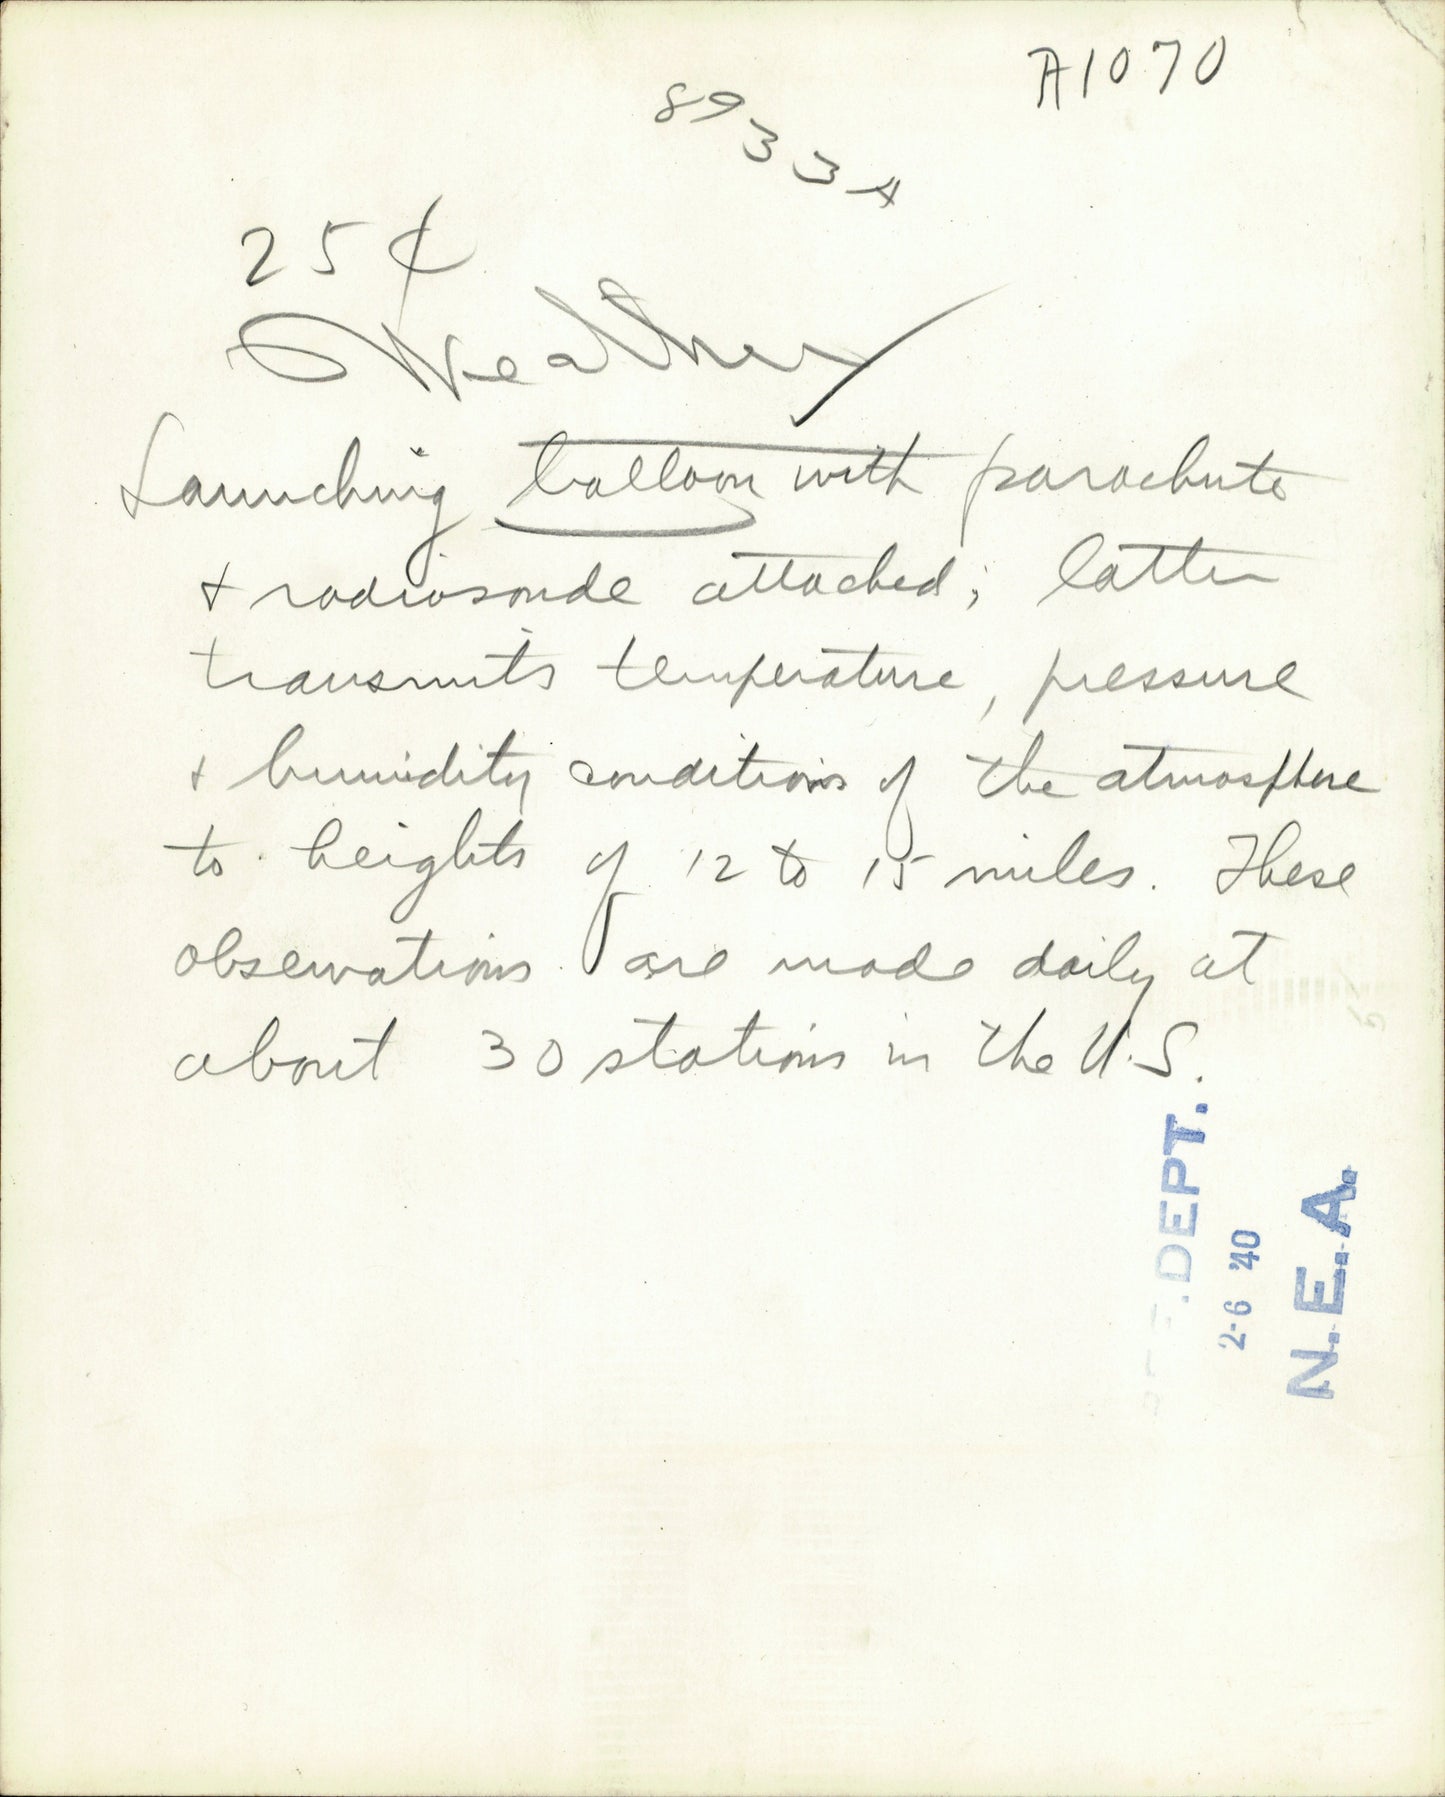 A1070
89334
25¢
Weather
Launching balloon with parachute
+ radiosonde attached; latter
transmits temperature, pressure
+ humidity conditions of the atmosphere
to heights of 12 to 15 miles. These
observations are made daily at
about 30 stations in the U.S.
DEPT.
2-6 '40
N.E.A.